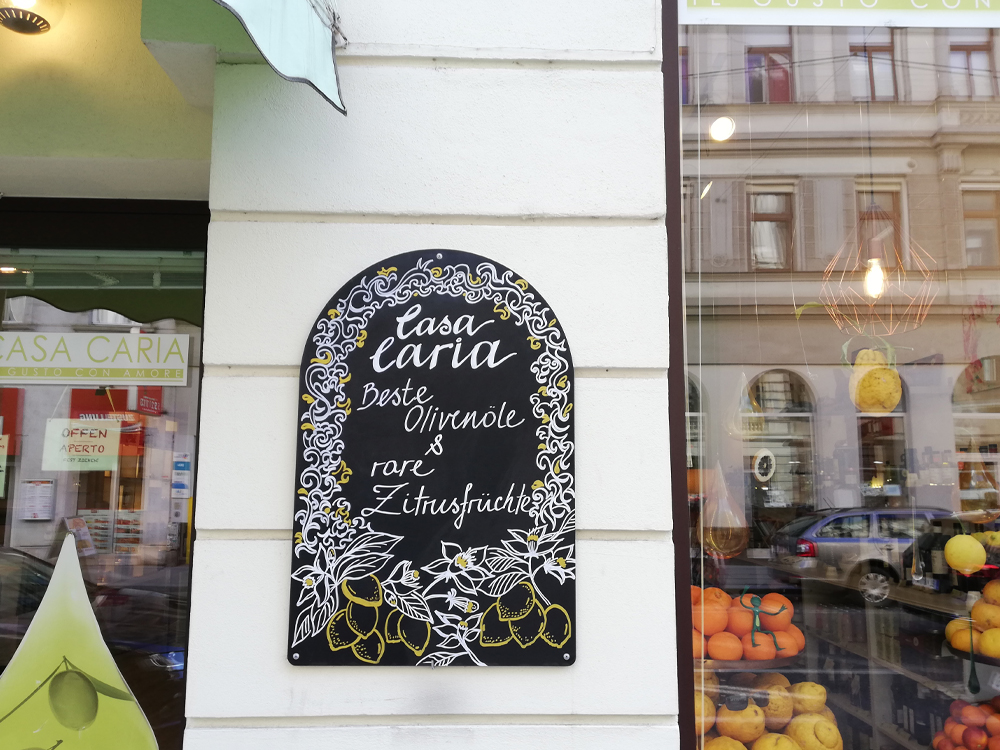 IL GUSTO CON
Casa
Caria
Beste
Olivenöle
&
rare
Zitrusfrüchte
CASA CARIA
GUSTO CON AMORE
OFFEN
APERTO